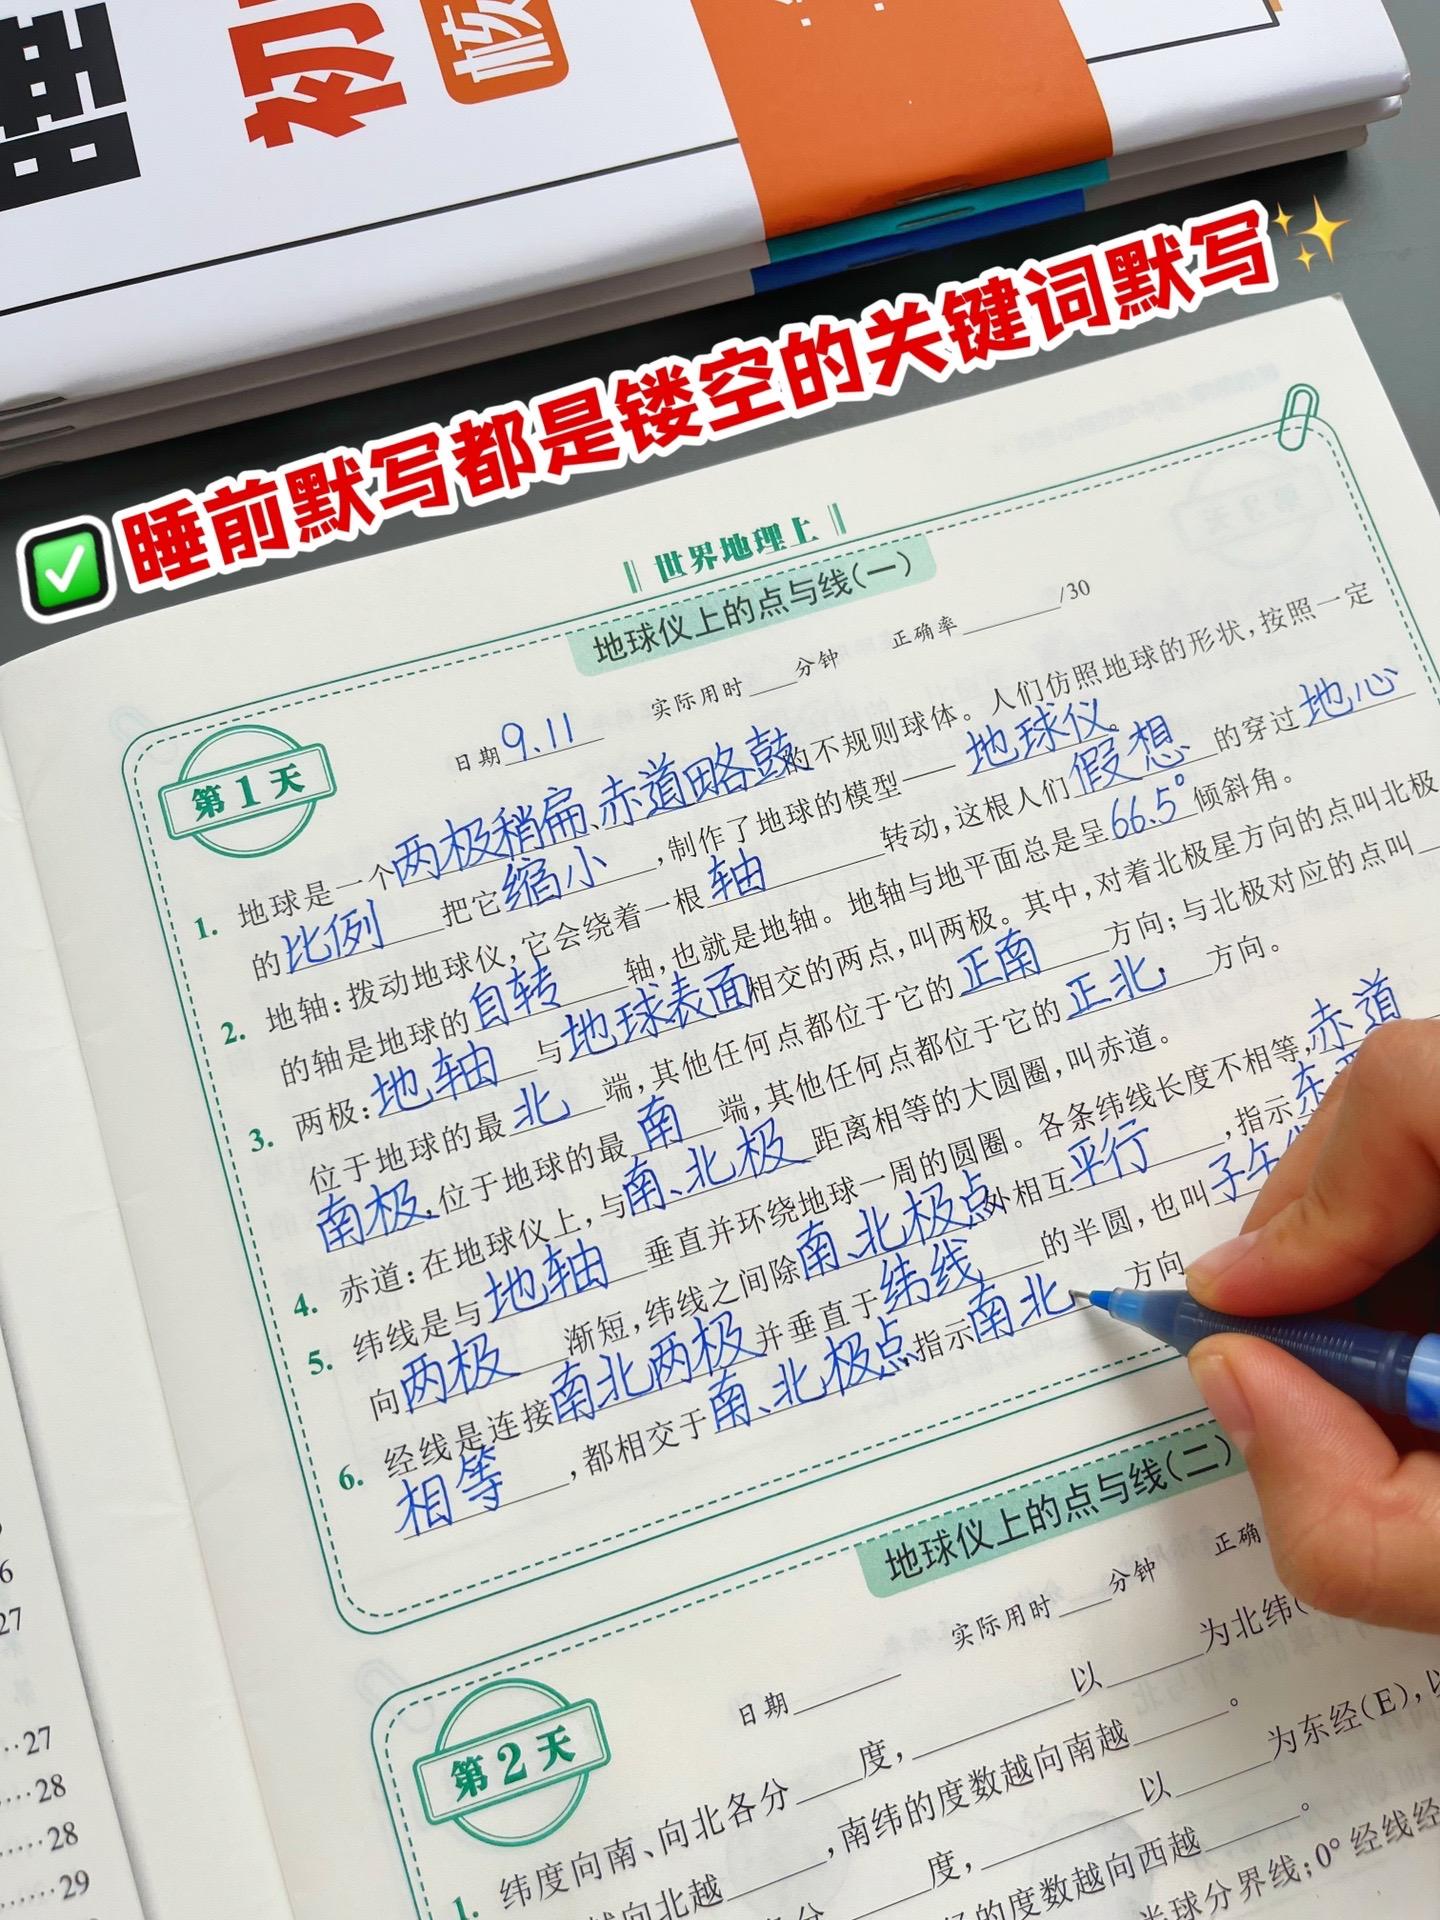 初
核
✅睡前默写都是镂空的关键词默写✨
世界地理上
地球仪上的点与线(一)
第1天
日期9.11 实际用时____分钟 正确率______/30
1. 地球是一个两极稍扁、赤道略鼓的不规则球体。人们仿照地球的形状,按照一定
的比例把它缩小,制作了地球的模型——地球仪。
2. 地轴:拨动地球仪,它会绕着一根轴转动,这根人们假想的穿过地心
的轴是地球的自转轴,也就是地轴。地轴与地平面总是呈66.5°倾斜角。
3. 两极:地轴与地球表面相交的两点,叫两极。其中,对着北极星方向的点叫北极
位于地球的最北端,其他任何点都位于它的正南方向;与北极对应的点叫
南极,位于地球的最南端,其他任何点都位于它的正北方向。
4. 赤道:在地球仪上,与南、北极距离相等的大圆圈,叫赤道。
5. 纬线是与地轴垂直并环绕地球一周的圆圈。各条纬线长度不相等,赤道
向两极渐短,纬线之间除南、北极点外相互平行,指示东
6. 经线是连接南北两极并垂直于纬线的半圆,也叫子午
相等,都相交于南、北极点,指示南北方向
地球仪上的点与线(二)
第2天
日期______ 实际用时____分钟 正确
1. 纬度向南、向北各分____度,________以______为北纬(
向北越______,南纬的度数越向南越______。
度,________以______为东经(E),以
的度数越向西越______。
半球分界线;0°经线经
6
27
27
28
28
29